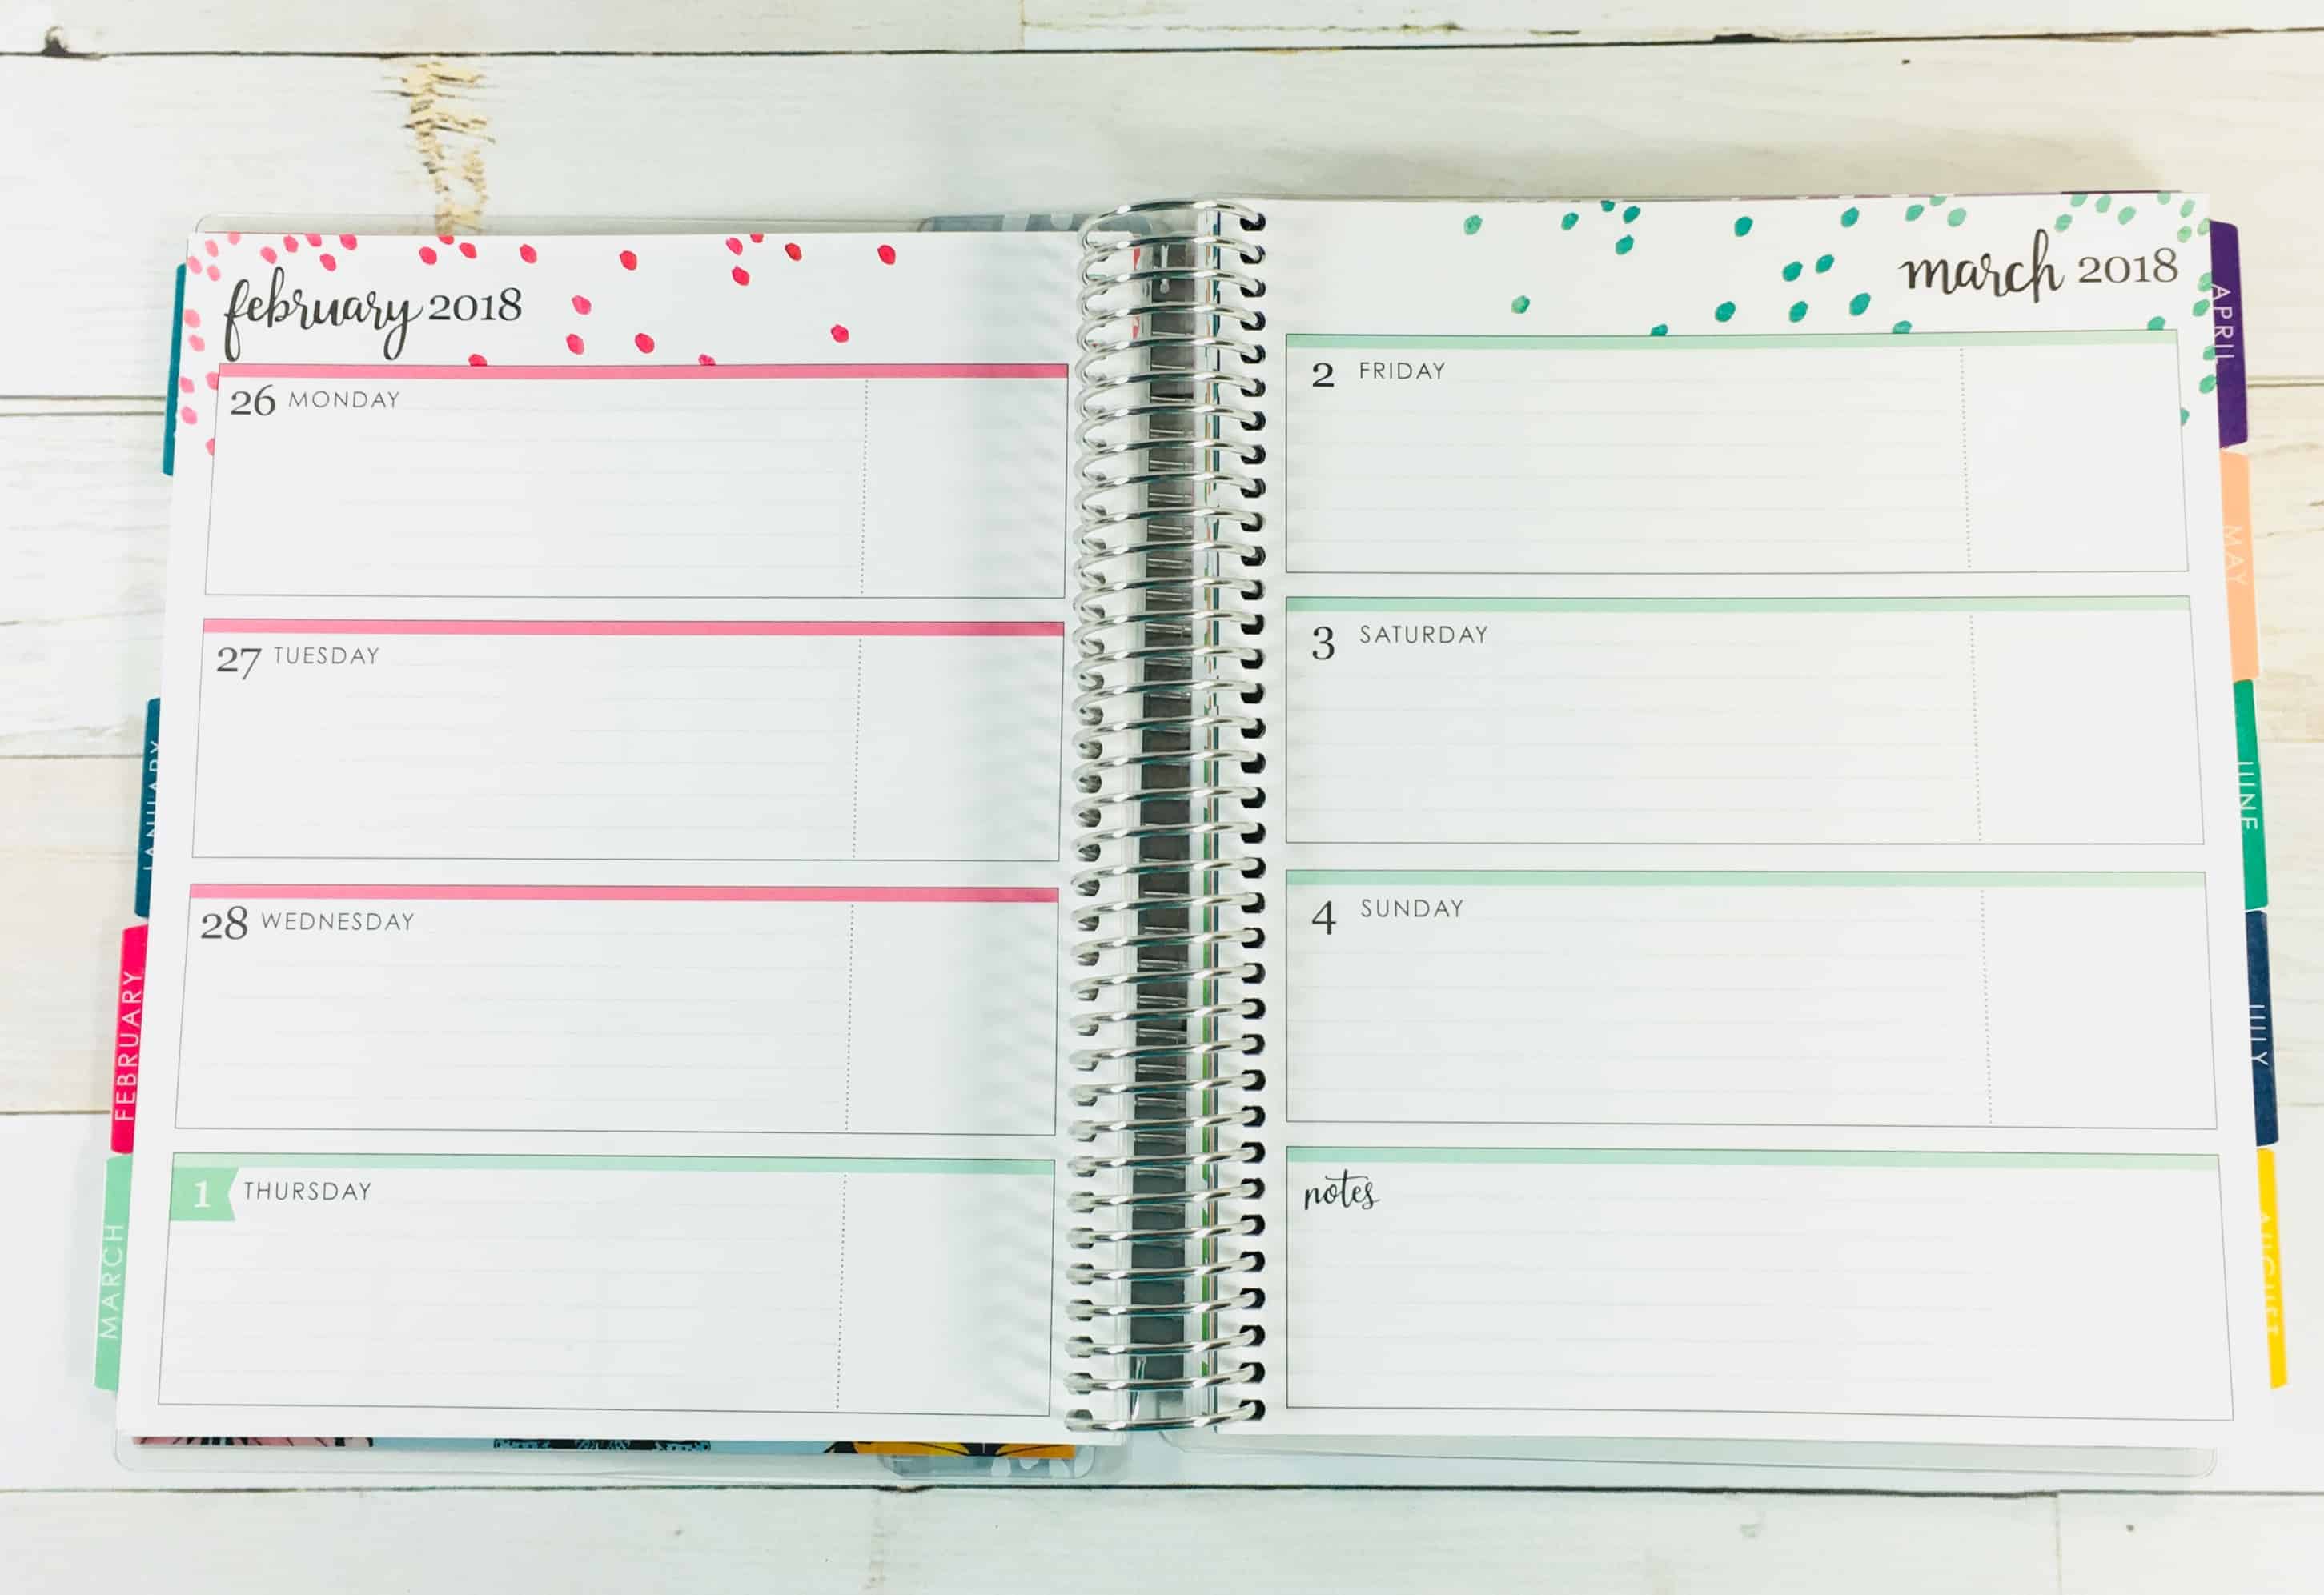 february 2018
26 MONDAY
27 TUESDAY
28 WEDNESDAY
1 THURSDAY
march 2018
2 FRIDAY
3 SATURDAY
4 SUNDAY
notes
JANUARY
FEBRUARY
MARCH
APRIL
MAY
JUNE
JULY
AUGUST